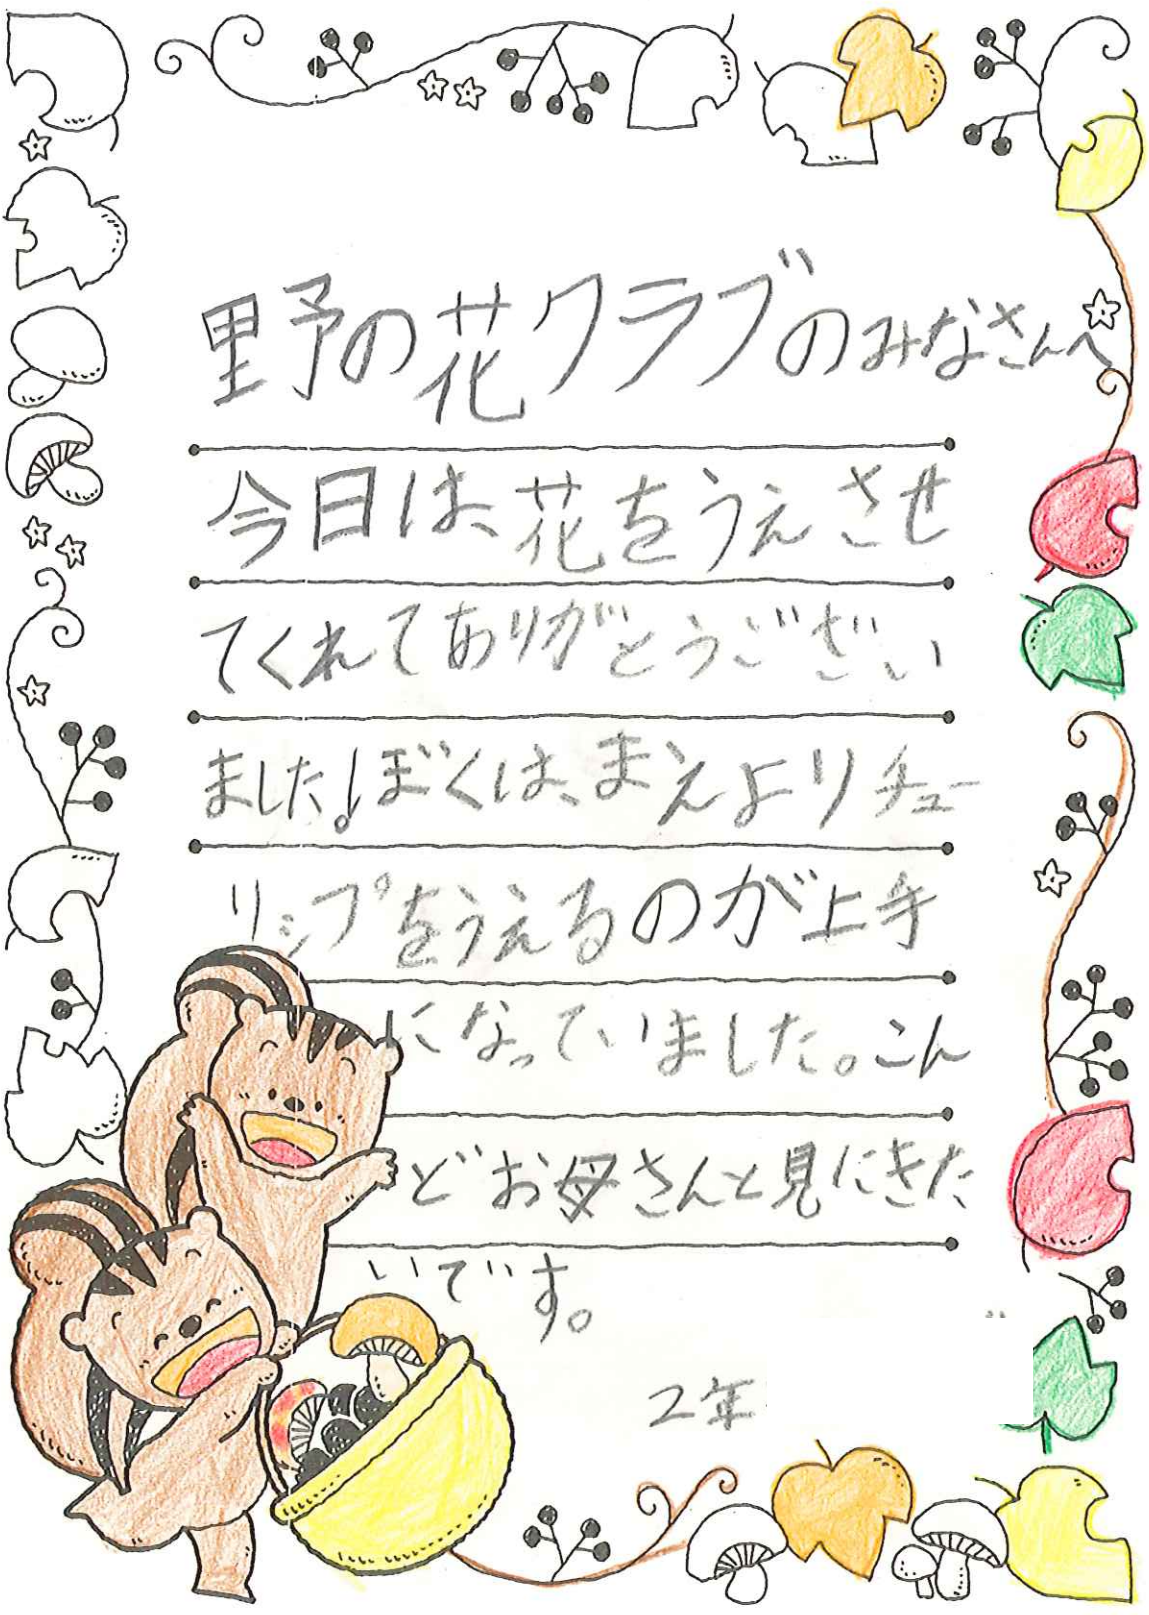 野の花クラブのみなさんへ
今日は、花をうえさせ
てくれてありがとうござい
ました!ぼくは、まえよりチュー
リップをうえるのが上手
になっていました。こん
どお母さんと見にきた
いです。
2年